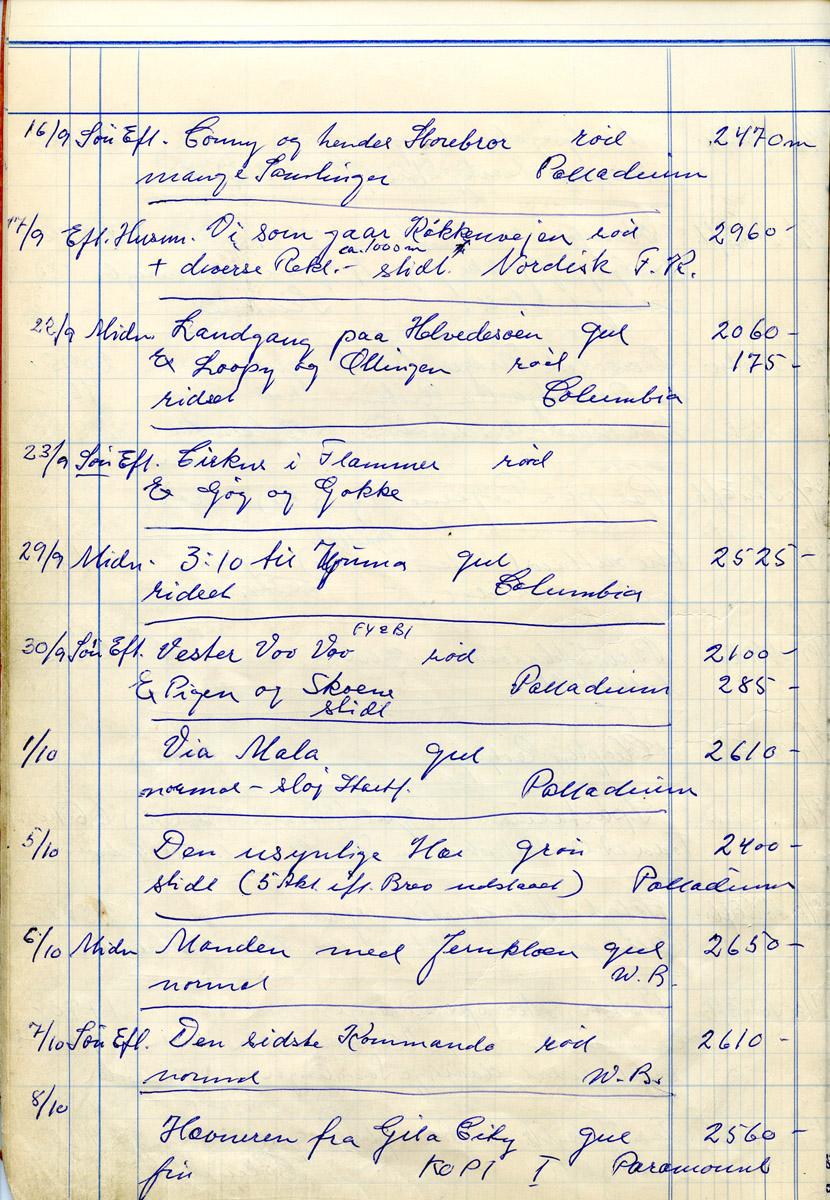 16/9 Søn Eft. Conny og hendes Storebror rød 2470 m
mange Samlinger Palladium
17/9 Eft. Husm. Vi som gaar Køkkenvejen rød 2960 -
ca. 1000 m
+ diverse Rekl. - slidt Nordisk F. K.
22/9 Midn. Landgang paa Helvedesøen gul 2060 -
Ex Loopy og Ællingen rød 175 -
ridset Columbia
23/9 Søn Eft. Cirkus i Flammer rød
Ex Gøg og Gokke
29/9 Midn. 3:10 til Yuma gul 2525 -
ridset Columbia
FY & BI
30/9 Søn Eft. Vester Vov Vov rød 2100 -
Ex Pigen og Skoene Palladium 285 -
slidt
1/10 Via Mala gul 2610 -
normal - sløj Palladium
5/10 Den usynlige Hær grøn 2400 -
slidt (5 Akt eft. Brev udstaaet) Palladium
6/10 Midn Manden med Jernkloen gul 2650 -
normal W.B.
7/10 Søn Eft. Den sidste Kommando rød 2610 -
normal W.B.
8/10
Hævneren fra Gila City gul 2560 -
fin KOPI I Paramount